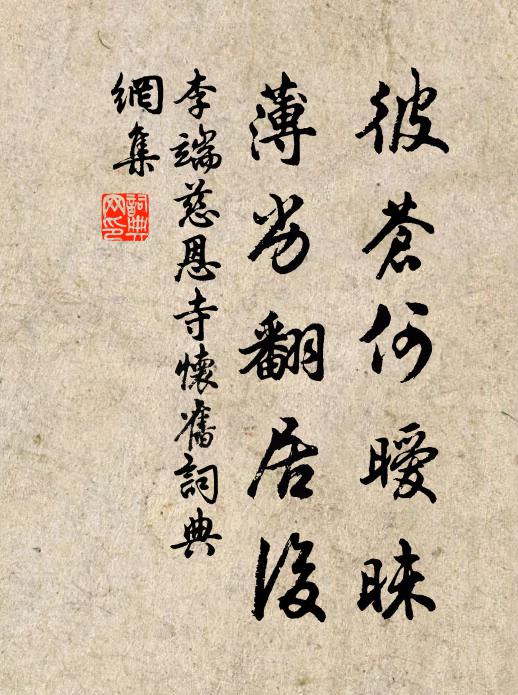 彼蒼何曖昧
薄劣翻居後
李端慈恩寺懷舊詞典
網集
詞典網印